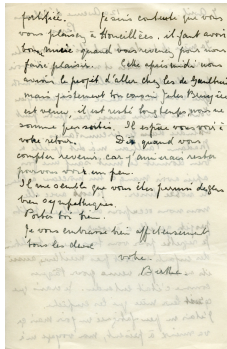 fortifie. Je suis contente que vous
vous plaisez à Houeillès, il faut avoir
bonne mine quand vous revenez pour nous
faire plaisir. Cette après midi nous
avions le projet d'aller chez les de
mais justement ton cousin Jules
est venu, il est resté longtemps nous ne
somme pas sortis. Il espère vous voir à
votre retour. Dis quand vous
comptez revenir, car j'aimerais
vous voir un peu.
Il me semble que vous êtes parmi des gens
très sympathiques.
Portez bien.
Je vous embrasse bien affectueusement
tous les deux
votre
Berthe